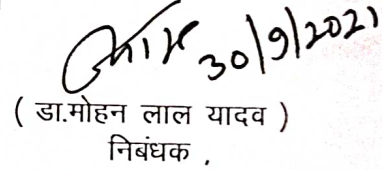 30/9/2021
( डा.मोहन लाल यादव )
निबंधक ,